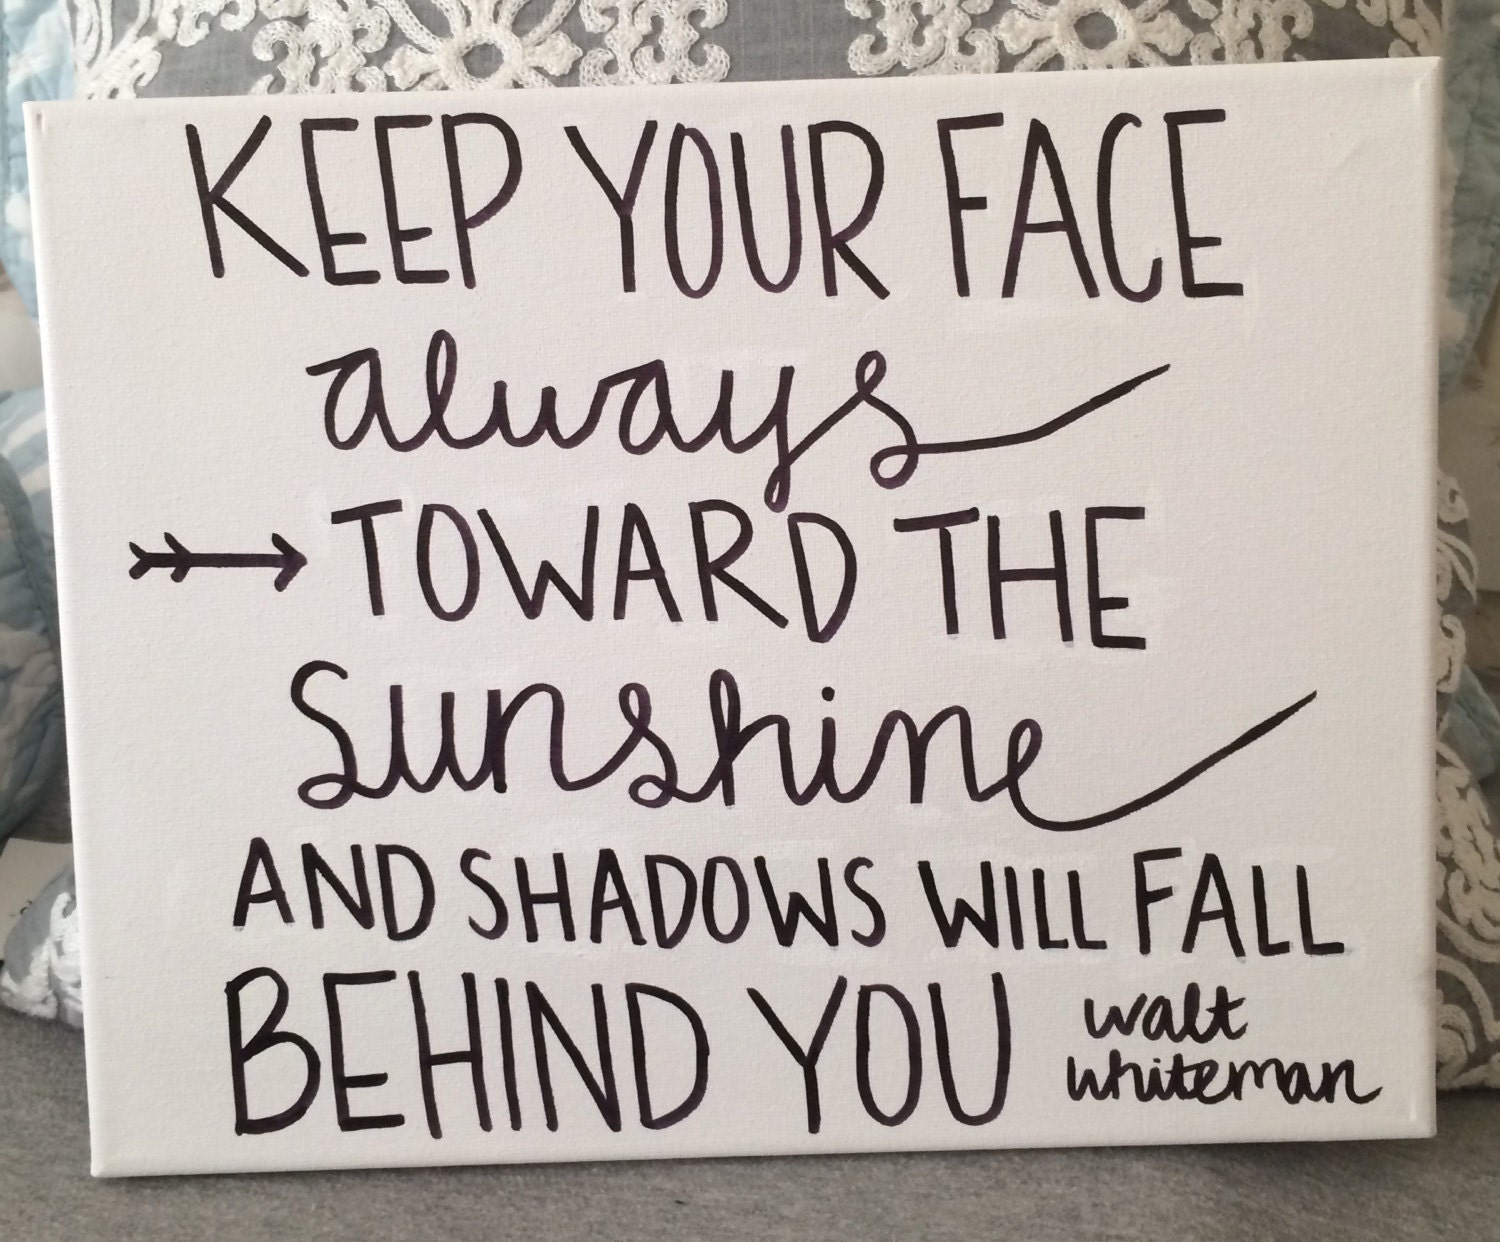 KEEP YOUR FACE
always
TOWARD THE
sunshine
AND SHADOWS WILL FALL
BEHIND YOU
walt
whiteman